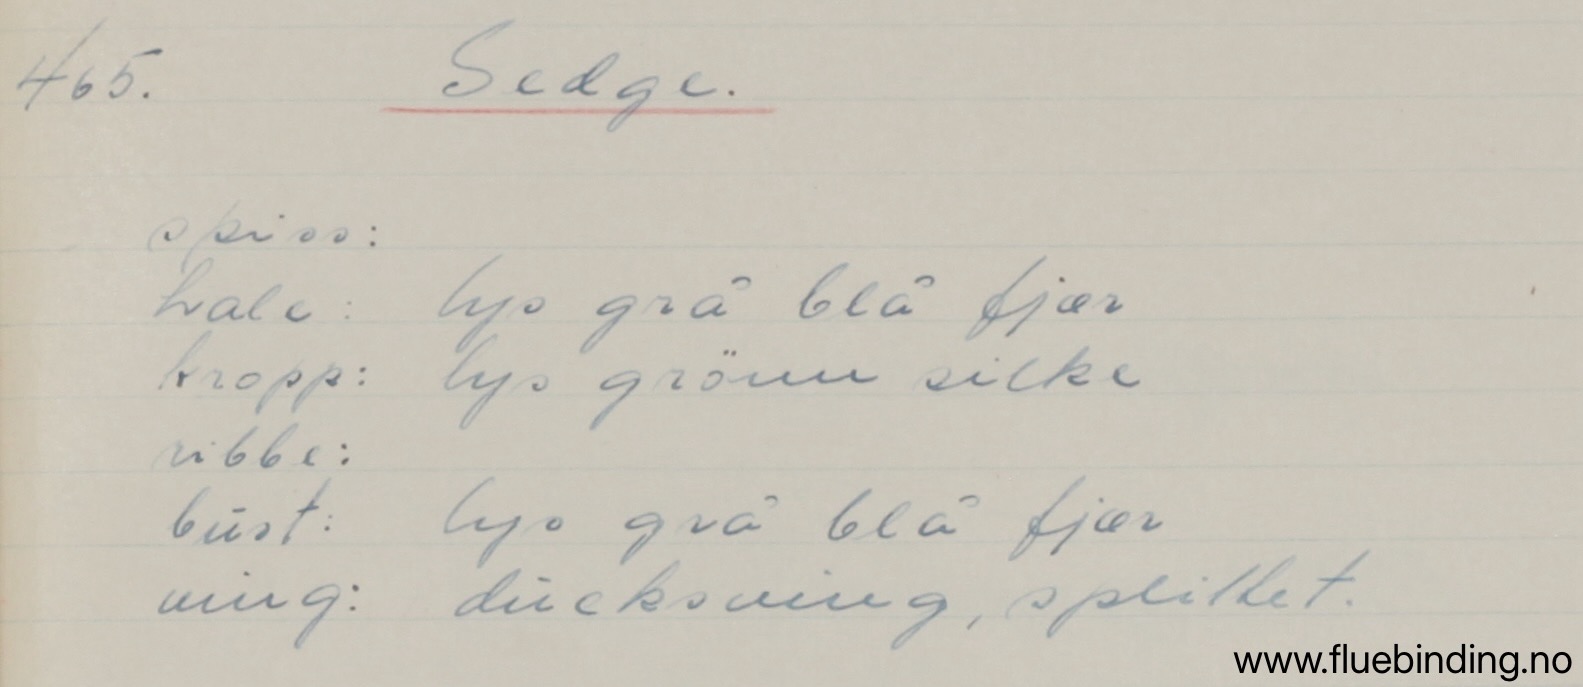 465. Sedge.
spiss:
hale: lys grå blå fjær
kropp: lys grönn silke
ribbe:
bust: lys grå blå fjær
ving: ducksving, splittet.
www.fluebinding.no